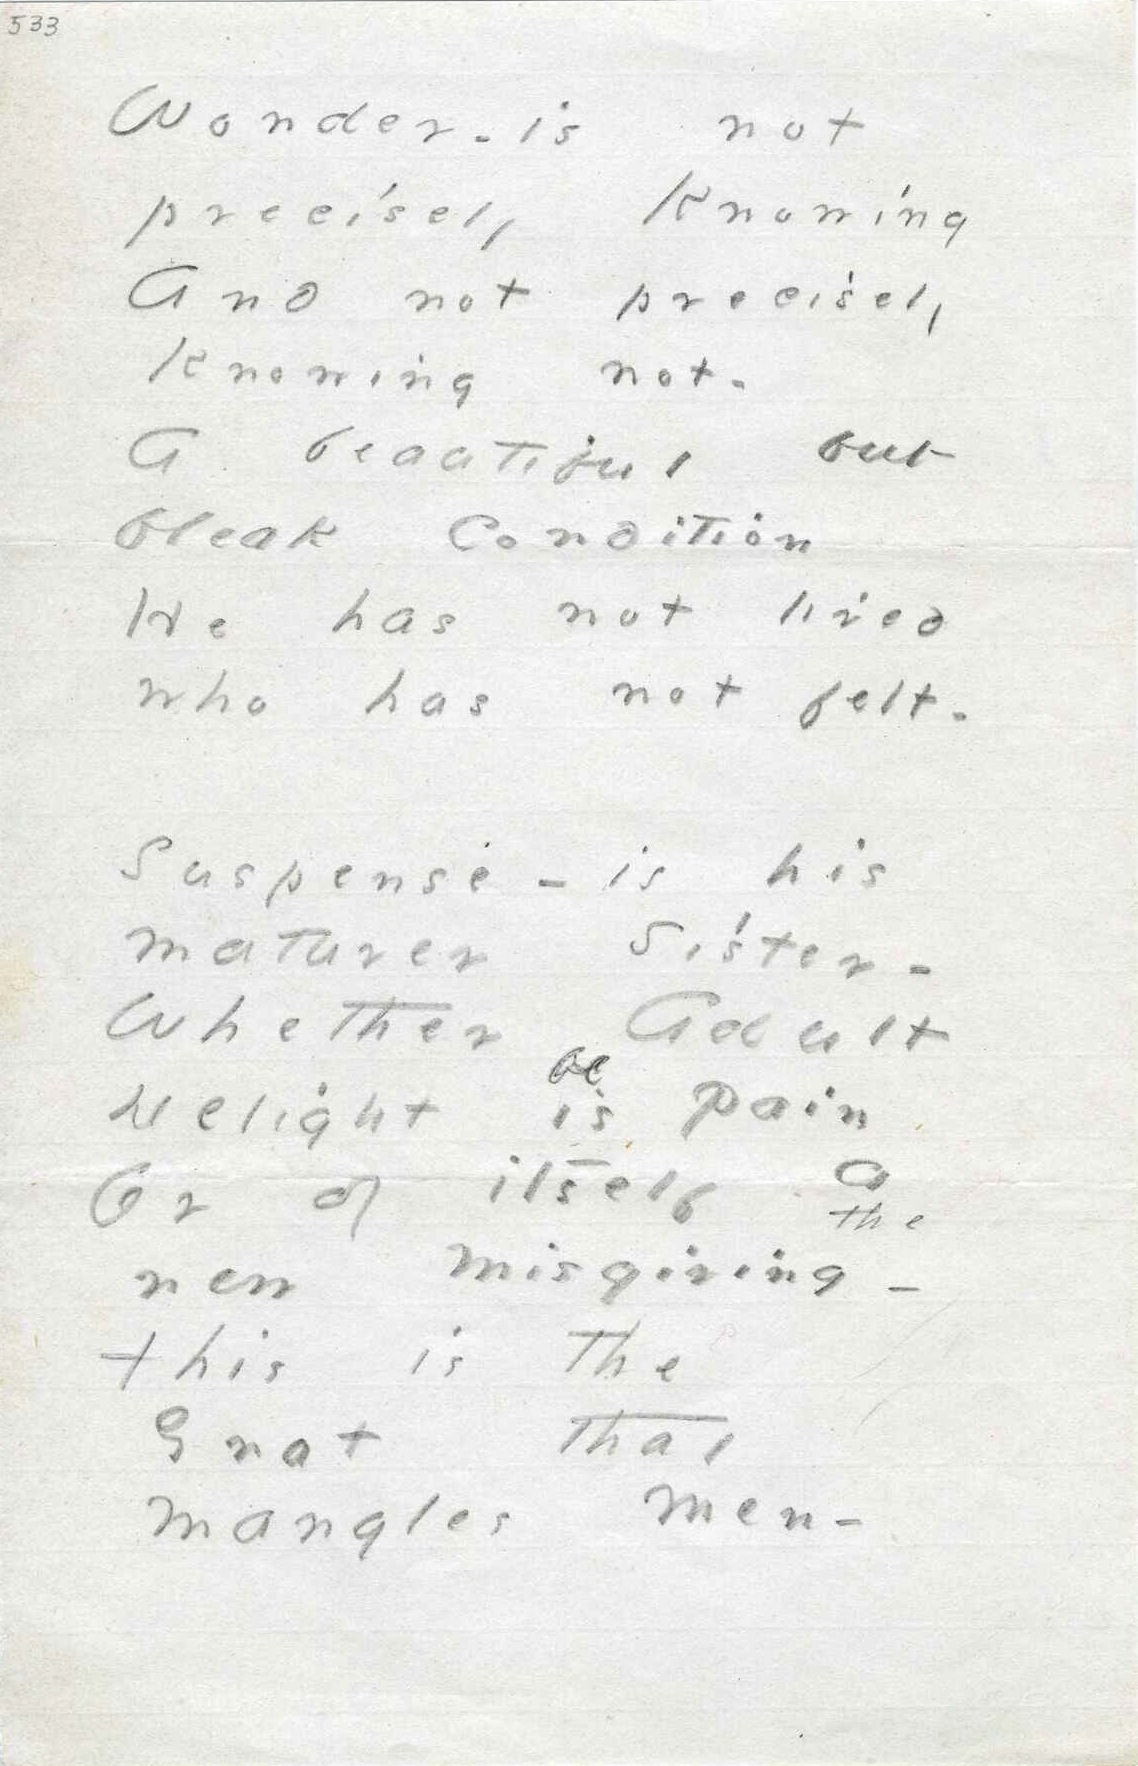 533
Wonder - is not
precisely Knowing
And not precisely
Knowing not -
A beautiful but
bleak Condition
He has not lived
who has not felt -
Suspense - is his
maturer Sister -
Whether Adult
be
Delight is Pain
Or of itself a
the
new misgiving -
this is the
Gnat that
mangles men -